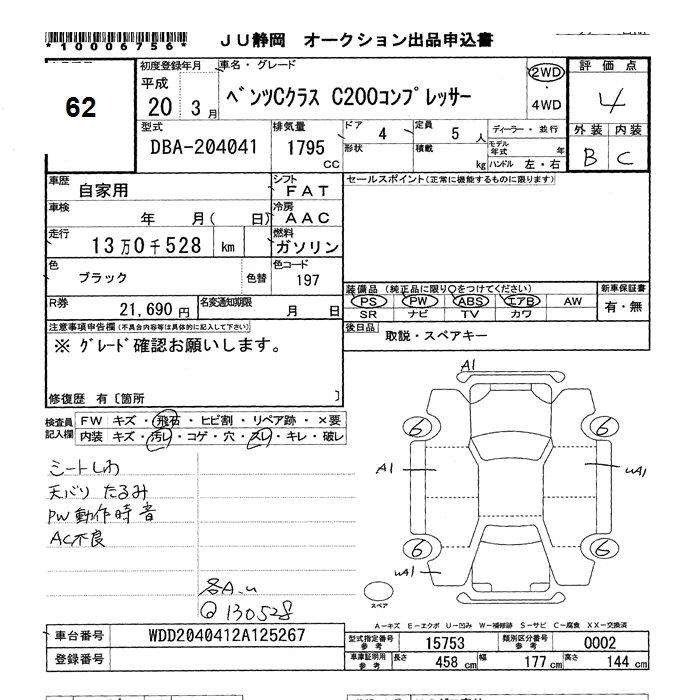 *10006756*
JU静岡 オークション出品申込書
62
初度登録年月
平成
20 3月
車名・グレード
ベンツCクラス C200コンプレッサー
2WD
・
4WD
評価点
4
外装 内装
B C
型式
DBA-204041
排気量
1795
CC
ドア 4
定員 5 人
ディーラー・並行
形状
積載
kg
モデル年式 年
ハンドル 左・右
車歴
自家用
シフト
FAT
車検
年 月( 日)
冷房
AAC
走行
13万0千528 km
燃料
ガソリン
色
ブラック
色替
色コード
197
R券
21,690円
名変通知期限
月 日
セールスポイント(正常に機能するものに限ります)
装備品(純正品に限り○をつけてください)
PS PW ABS エアB AW
SR ナビ TV カワ
新車保証書
有・無
後日品
取説・スペアキー
注意事項申告欄(不具合内容等は具体的に記入して下さい)
※ グレード確認お願いします。
修復歴 有〔箇所 〕
検査員記入欄
FW キズ・飛石・ヒビ割・リペア跡・×要
内装 キズ・汚レ・コゲ・穴・スレ・キレ・破レ
シートしわ
天バリ たるみ
PW動作時音
AC不良
各A.u
Q 130528
A1
6 6
A1 uA1
6 6
uA1
スペア
A-キズ E-エクボ U-凹み W-補修跡 S-サビ C-腐食 XX-交換済
車台番号
WDD2040412A125267
登録番号
型式指定番号
参考
15753
類別区分番号
参考
0002
車庫証明用
参考
長さ 458 cm 幅 177 cm 高さ 144 cm